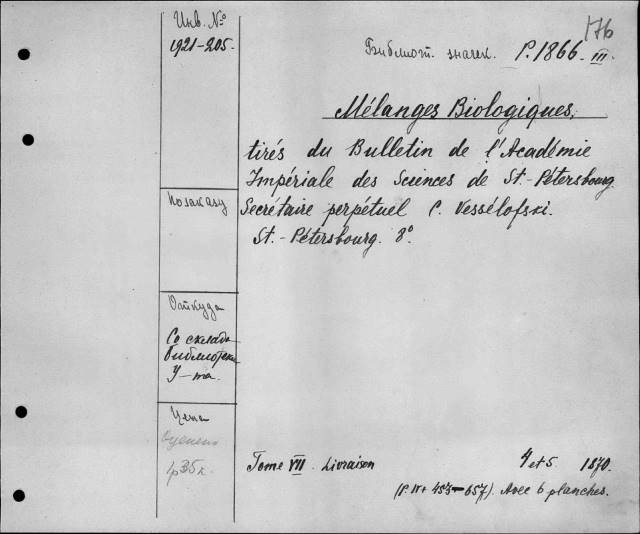 176
Инв. №
1921-205.
Библиот. значек. P. 1866. III.
Mélanges Biologiques,
tirés du Bulletin de l'Académie
Impériale des Sciences de St.-Pétersbourg.
Secrétaire perpétuel C. Vessélofski.
St.-Pétersbourg. 8°.
По заказу
Откуда
Со склада
библиотеки
У-та.
Цена
1р35к.
Tome VII. Livraison 4 et 5 1870.
(P. IV + 453-657). Avec 6 planches.